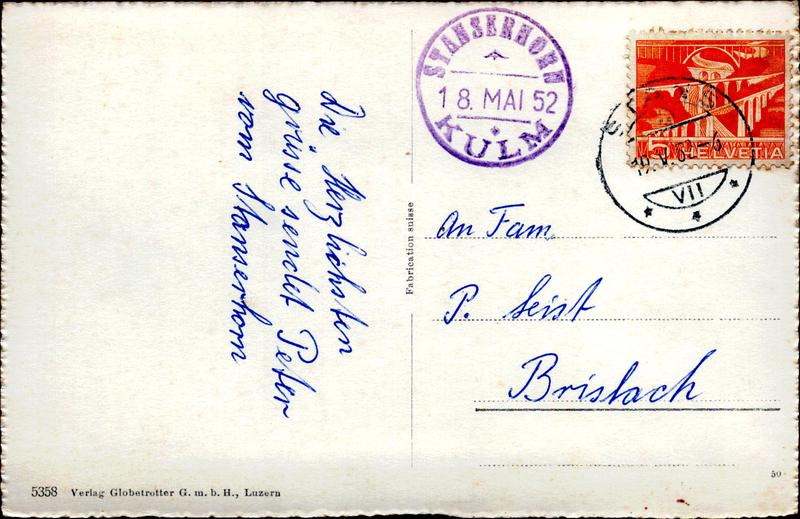 die Herzlichsten
grüsse sendet Peter
vom Stanserhorn
STANSERHORN
18. MAI 52
KULM
5 HELVETIA
VII
An Fam.
P. Seist
Brislach
Fabrication suisse
50
5358 Verlag Globetrotter G. m. b. H., Luzern